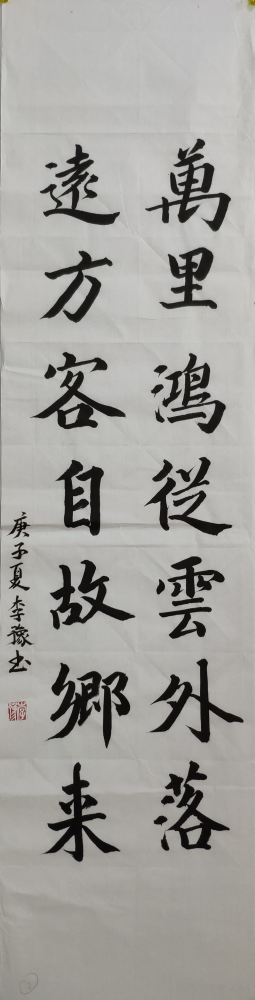 萬里鴻從雲外落
遠方客自故鄉来
庚子夏李豫书